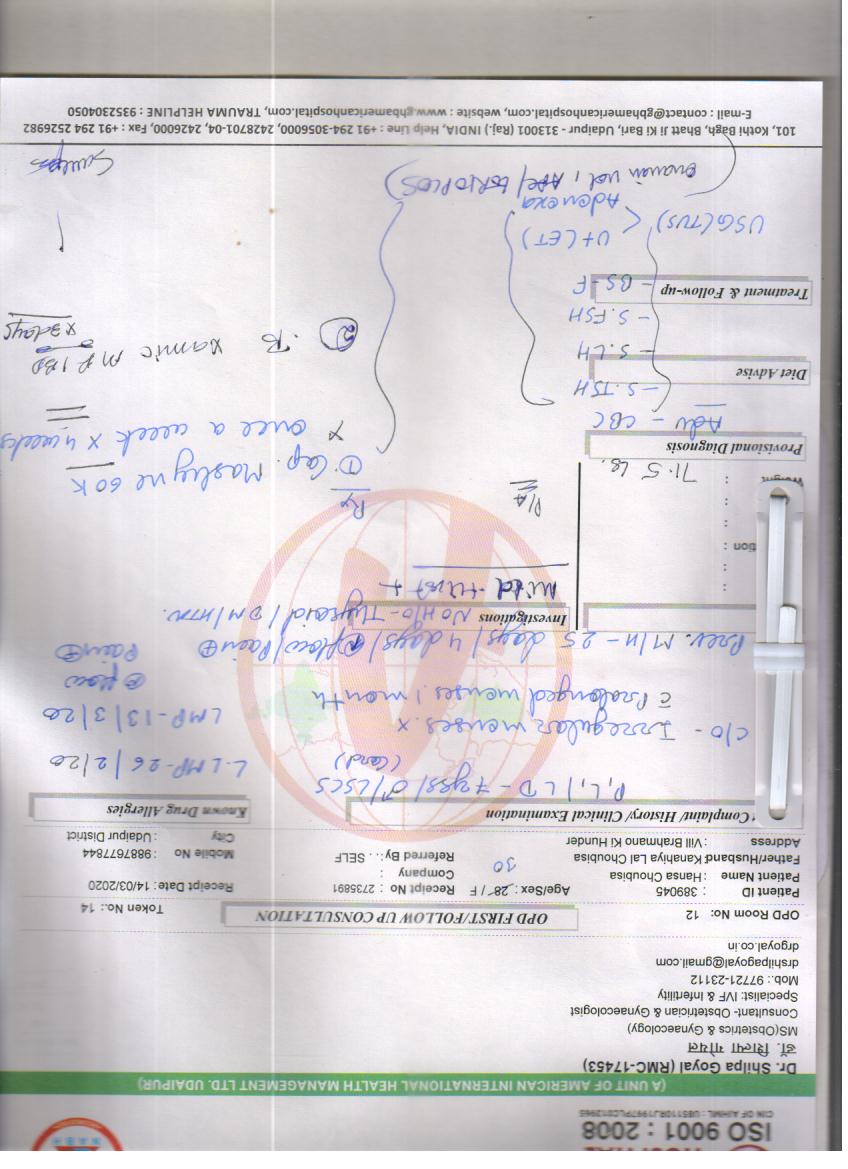 HOSPITAL
ISO 9001 : 2008
CIN AIHML : U85110RJ1997PLC012965
NABH
(A UNIT OF AMERICAN INTERNATIONAL HEALTH MANAGEMENT LTD. UDAIPUR)
Dr. Shilpa Goyal (RMC-17453)
डॉ. शिल्पा गोयल
MS(Obstetrics & Gynaecology)
Consultant- Obstetrician & Gynaecologist
Specialist: IVF & Infertility
Mob.: 97721-23112
drshilpagoyal@gmail.com
drgoyal.co.in
OPD Room No: 12
OPD FIRST/FOLLOW UP CONSULTATION
Token No.: 14
Patient ID : 389045
Age/Sex : 28 / F
30
Receipt No : 2735891
Receipt Date : 14/03/2020
Patient Name : Hansa Choubisa
Company :
Mobile No : 9887677844
Father/Husband Kanahiya Lal Choubisa
Referred By: . . SELF
City : Udaipur District
Address : Vill Brahmano Ki Hunder
Complaint/ History/ Clinical Examination
Known Drug Allergies
P1L1 / LD - 7 yrs / ♂ / LSCS
L.LMP - 26/2/20
c/o - Irregular menses x
LMP - 13/3/20
c̄ Prolonged menses 1 month
flow
Pain ⊕
Prev. M/H - 25 days / 4 days / flow / Pain ⊕
Investigations
No H/O - Thyroid / DM / HTN.
tion :
P/A
Rx
71.5
① Cap. 60K
Provisional Diagnosis
x once a week x 4 weeks
Adv - CBC
- S.TSH
Diet Advise
- S.LH
② T. xamic MF 1BD
x 3 days
- S.FSH
Treatment & Follow-up
- BS-F
USG (TVS) < Ut (ET)
Adenexa
101, Kothi Bagh, Bhatt Ji Ki Bari, Udaipur - 313001 (Raj.) INDIA, Help Line : +91 294-3056000, 2428701-04, 2426000, Fax : +91 294 2526982
E-mail : contact@gbhamericanhospital.com, website : www.gbhamericanhospital.com, TRAUMA HELPLINE : 9352304050